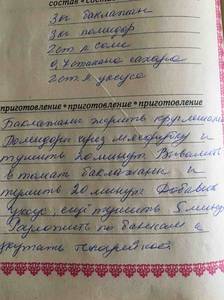 состав • состав • состав
3 кг баклажан
3 кг помидор
2 ст л соли
0,4 стакана сахара
2 ст. л уксуса
приготовление • приготовление • приготовление
Баклажаны жарить кружочками
Помидоры через мясорубку и
тушить 20 минут. Вывалить
в томат баклажаны и
тушить 20 минут. Добавить
уксус, ещё тушить 5 минут
Разложить по банкам и
укутать